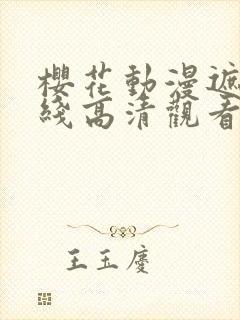 櫻花動漫遮
綫高清觀看
王玉慶